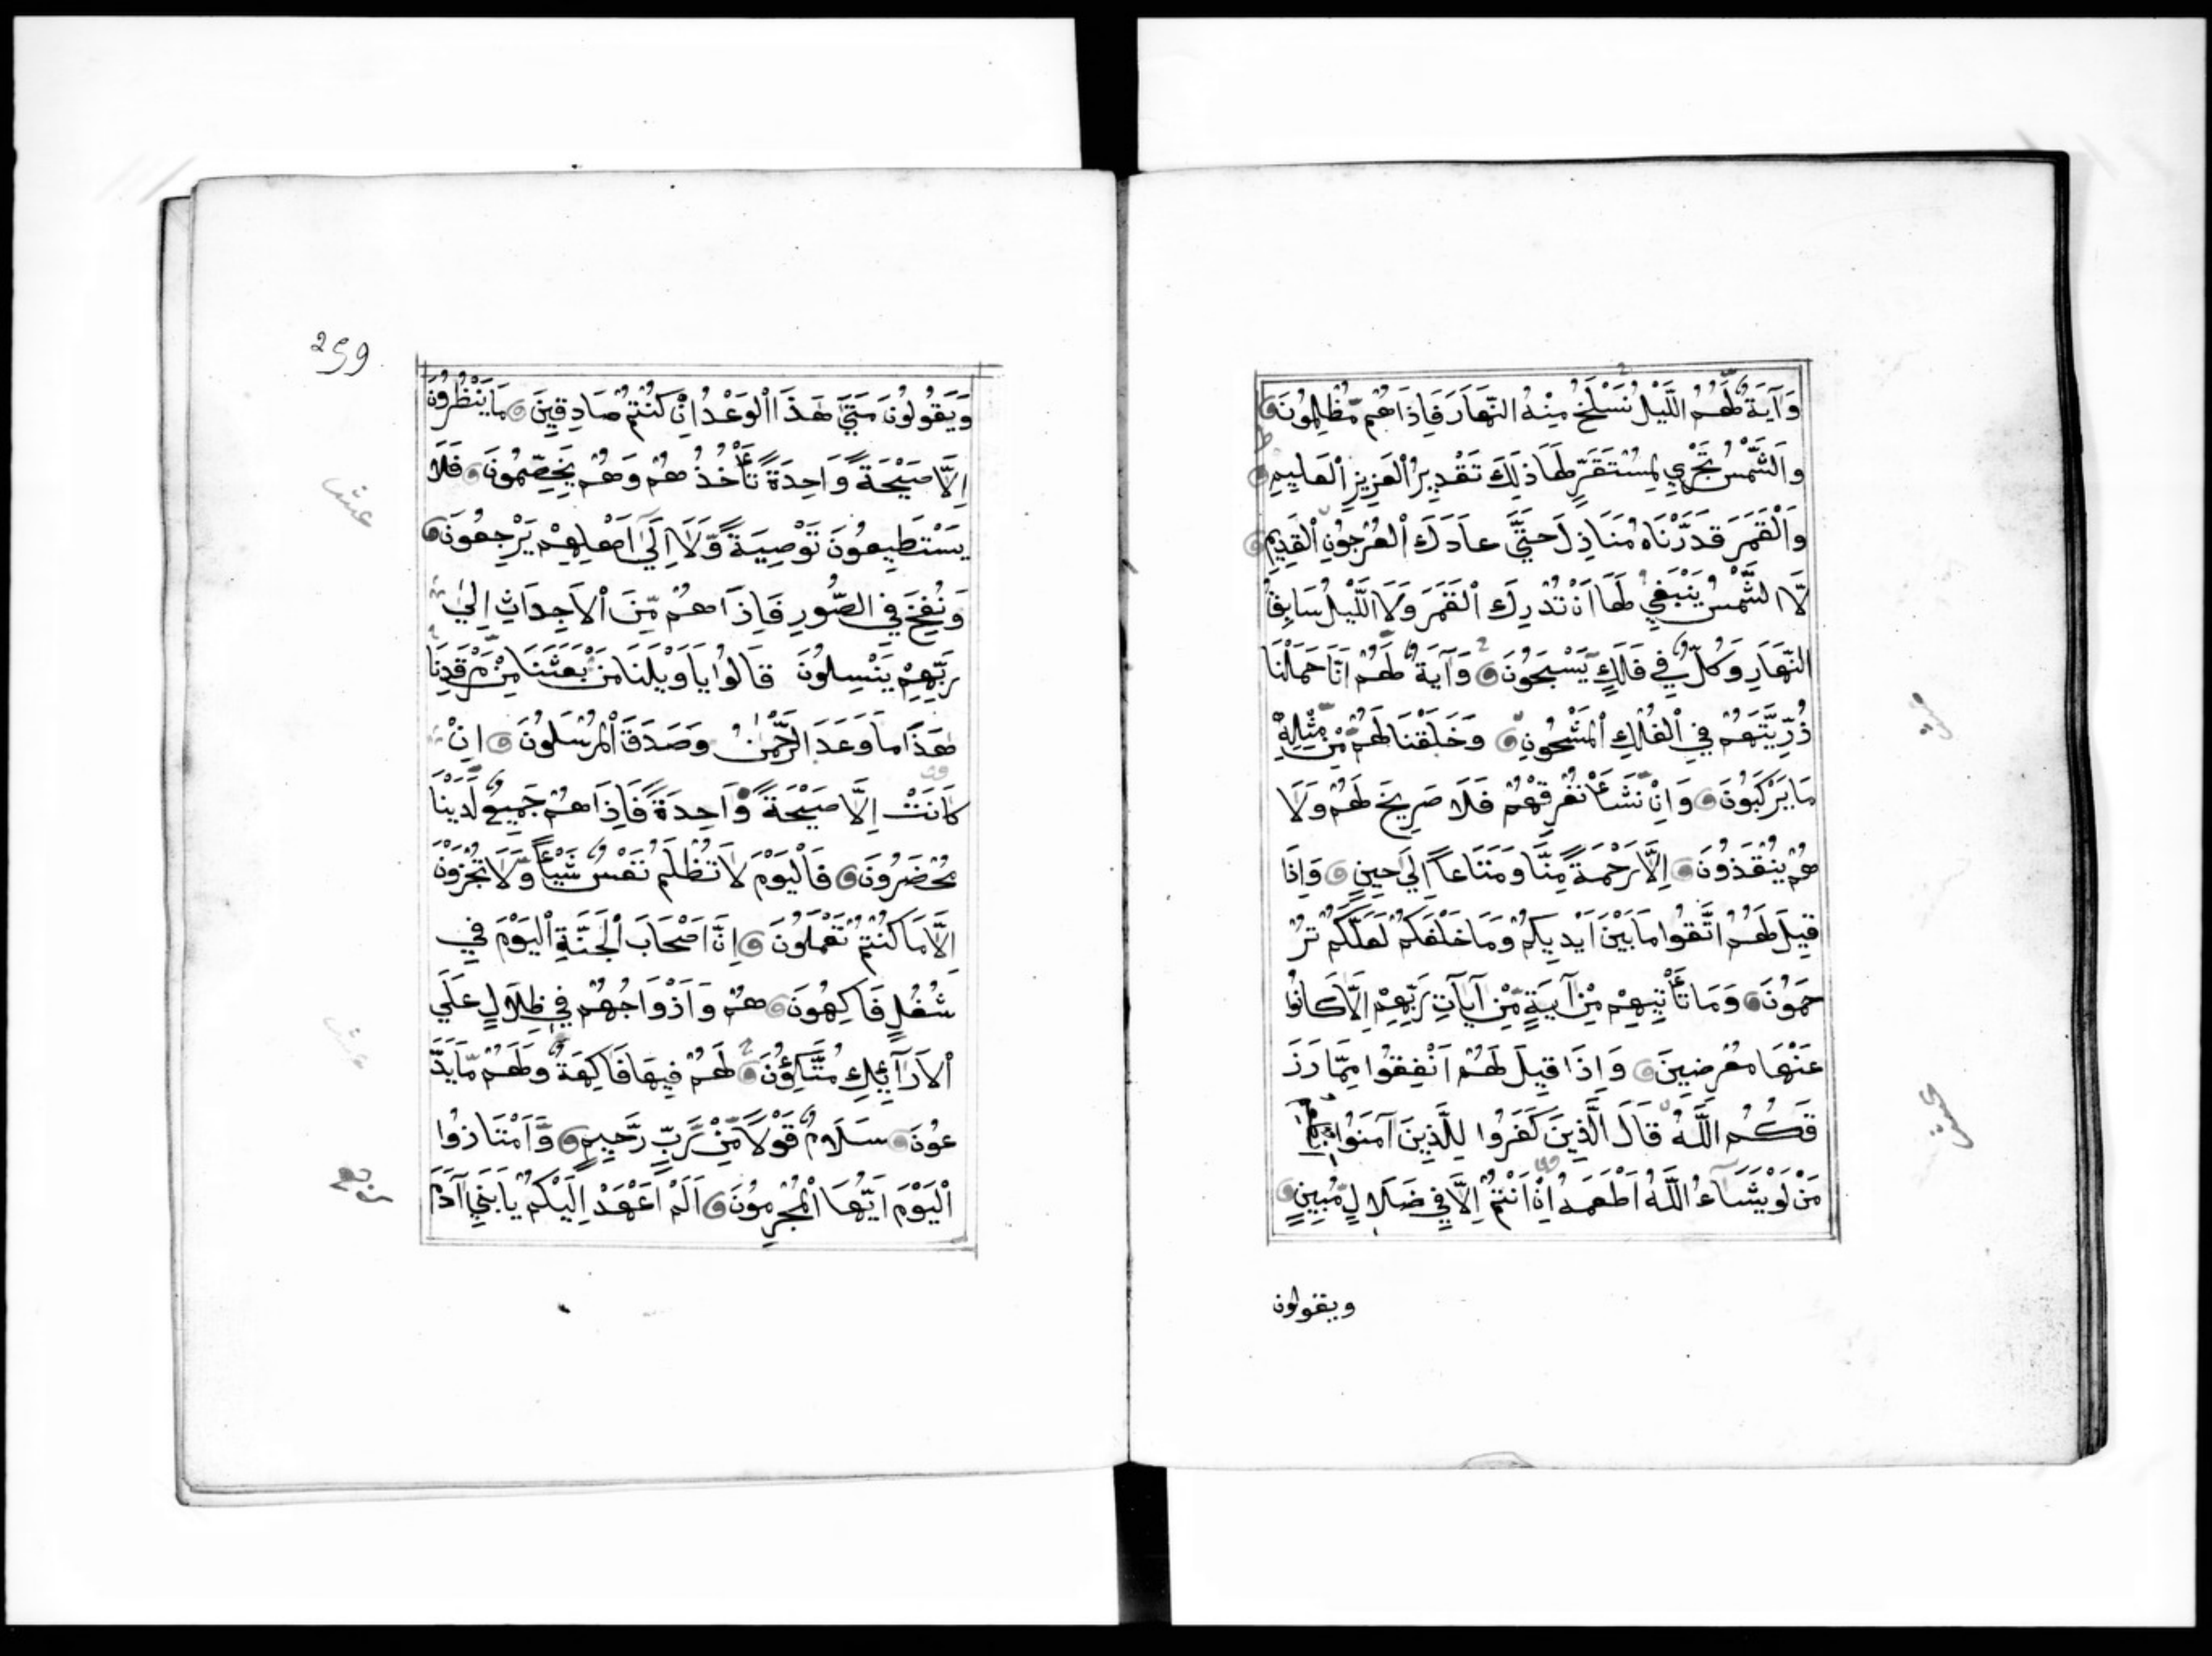 وَآيَةٌ لَّهُمُ اللَّيْلُ نَسْلَخُ مِنْهُ النَّهَارَ فَإِذَا هُمْ مُّظْلِمُونَ
وَالشَّمْسُ تَجْرِي لِمُسْتَقَرٍّ لَهَا ذَلِكَ تَقْدِيرُ الْعَزِيزِ الْعَلِيمِ
وَالْقَمَرَ قَدَّرْنَاهُ مَنَازِلَ حَتَّى عَادَ كَالْعُرْجُونِ الْقَدِيمِ
لَا الشَّمْسُ يَنْبَغِي لَهَا أَنْ تُدْرِكَ الْقَمَرَ وَلَا اللَّيْلُ سَابِقُ
النَّهَارِ وَكُلٌّ فِي فَلَكٍ يَسْبَحُونَ وَآيَةٌ لَهُمْ أَنَّا حَمَلْنَا
ذُرِّيَّتَهُمْ فِي الْفُلْكِ الْمَشْحُونِ وَخَلَقْنَا لَهُمْ مِنْ مِّثْلِهِ
مَا يَرْكَبُونَ وَإِنْ نَّشَأْ نُغْرِقْهُمْ فَلَا صَرِيخَ لَهُمْ وَلَا
هُمْ يُنْقَذُونَ إِلَّا رَحْمَةً مِنَّا وَمَتَاعًا إِلَى حِينٍ وَإِذَا
قِيلَ لَهُمُ اتَّقُوا مَا بَيْنَ أَيْدِيكُمْ وَمَا خَلْفَكُمْ لَعَلَّكُمْ تُرْ
حَمُونَ وَمَا تَأْتِيهِمْ مِنْ آيَةٍ مِّنْ آيَاتِ رَبِّهِمْ إِلَّا كَانُوا
عَنْهَا مُعْرِضِينَ وَإِذَا قِيلَ لَهُمْ أَنْفِقُوا مِمَّا رَزَ
قَكُمُ اللَّهُ قَالَ الَّذِينَ كَفَرُوا لِلَّذِينَ آمَنُوا
مَنْ لَوْ يَشَاءُ اللَّهُ أَطْعَمَهُ إِنْ أَنْتُمْ إِلَّا فِي ضَلَالٍ مُبِينٍ
ويقولون
259
وَيَقُولُونَ مَتَى هَذَا الْوَعْدُ إِنْ كُنْتُمْ صَادِقِينَ مَا يَنْظُرُونَ
إِلَّا صَيْحَةً وَاحِدَةً تَأْخُذُهُمْ وَهُمْ يَخِصِّمُونَ فَلَا
عشر
يَسْتَطِيعُونَ تَوْصِيَةً وَّلَا إِلَى أَهْلِهِمْ يَرْجِعُونَ
وَنُفِخَ فِي الصُّورِ فَإِذَا هُمْ مِّنَ الْأَجْدَاثِ إِلَى
رَبِّهِمْ يَنْسِلُونَ قَالُوا يَا وَيْلَنَا مَنْ بَعَثَنَا مِنْ مَّرْقَدِنَا
هَذَا مَا وَعَدَ الرَّحْمَنُ وَصَدَقَ الْمُرْسَلُونَ إِنْ
كَانَتْ إِلَّا صَيْحَةً وَّاحِدَةً فَإِذَا هُمْ جَمِيعٌ لَّدَيْنَا
مُحْضَرُونَ فَالْيَوْمَ لَا تُظْلَمُ نَفْسٌ شَيْئًا وَّلَا تُجْزَوْنَ
إِلَّا مَا كُنْتُمْ تَعْمَلُونَ إِنَّ أَصْحَابَ الْجَنَّةِ الْيَوْمَ فِي
شُغُلٍ فَاكِهُونَ هُمْ وَأَزْوَاجُهُمْ فِي ظِلَالٍ عَلَى
الْأَرَائِكِ مُتَّكِؤُنَ لَهُمْ فِيهَا فَاكِهَةٌ وَلَهُمْ مَّا يَدَّ
عُونَ سَلَامٌ قَوْلًا مِّنْ رَّبٍّ رَّحِيمٍ وَامْتَازُوا
الْيَوْمَ أَيُّهَا الْمُجْرِمُونَ أَلَمْ أَعْهَدْ إِلَيْكُمْ يَا بَنِي آدَمَ